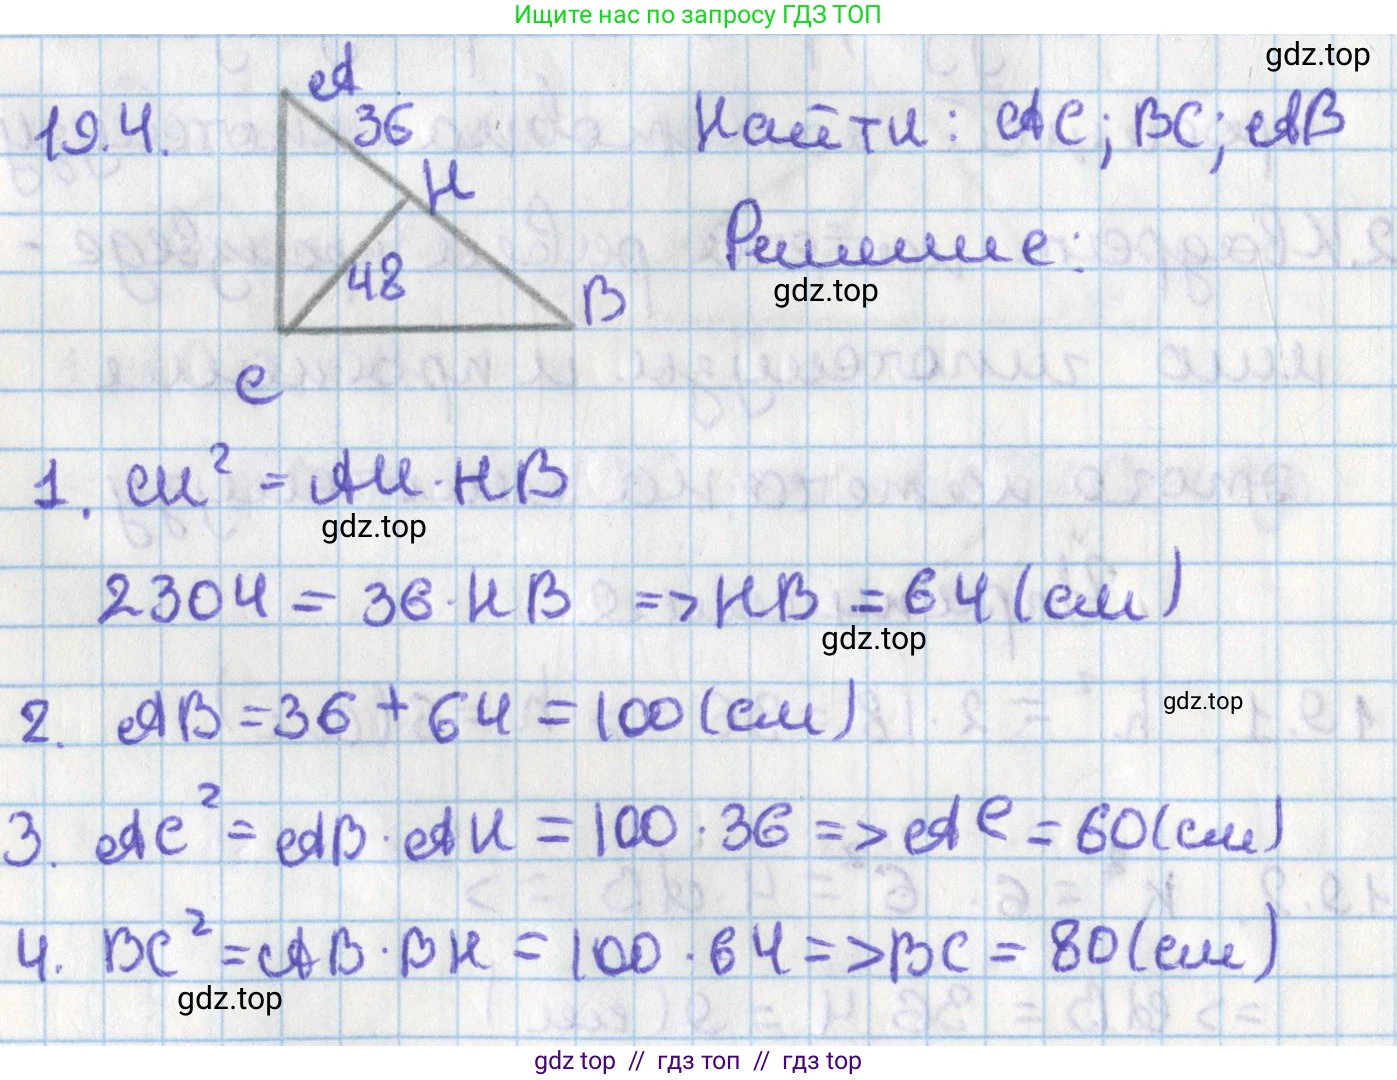 Ищите нас по запросу ГДЗ ТОП
gdz.top
19.4.
A
36
H
48
B
C
Найти: AC; BC; AB
Решение:
gdz.top
1. CH² = AH · HB
gdz.top
2304 = 36 · HB => HB = 64 (см)
gdz.top
2. AB = 36 + 64 = 100 (см)
gdz.top
3. AC² = AB · AH = 100 · 36 => AC = 60 (см)
4. BC² = AB · BH = 100 · 64 => BC = 80 (см)
gdz.top
gdz top // гдз топ // gdz top